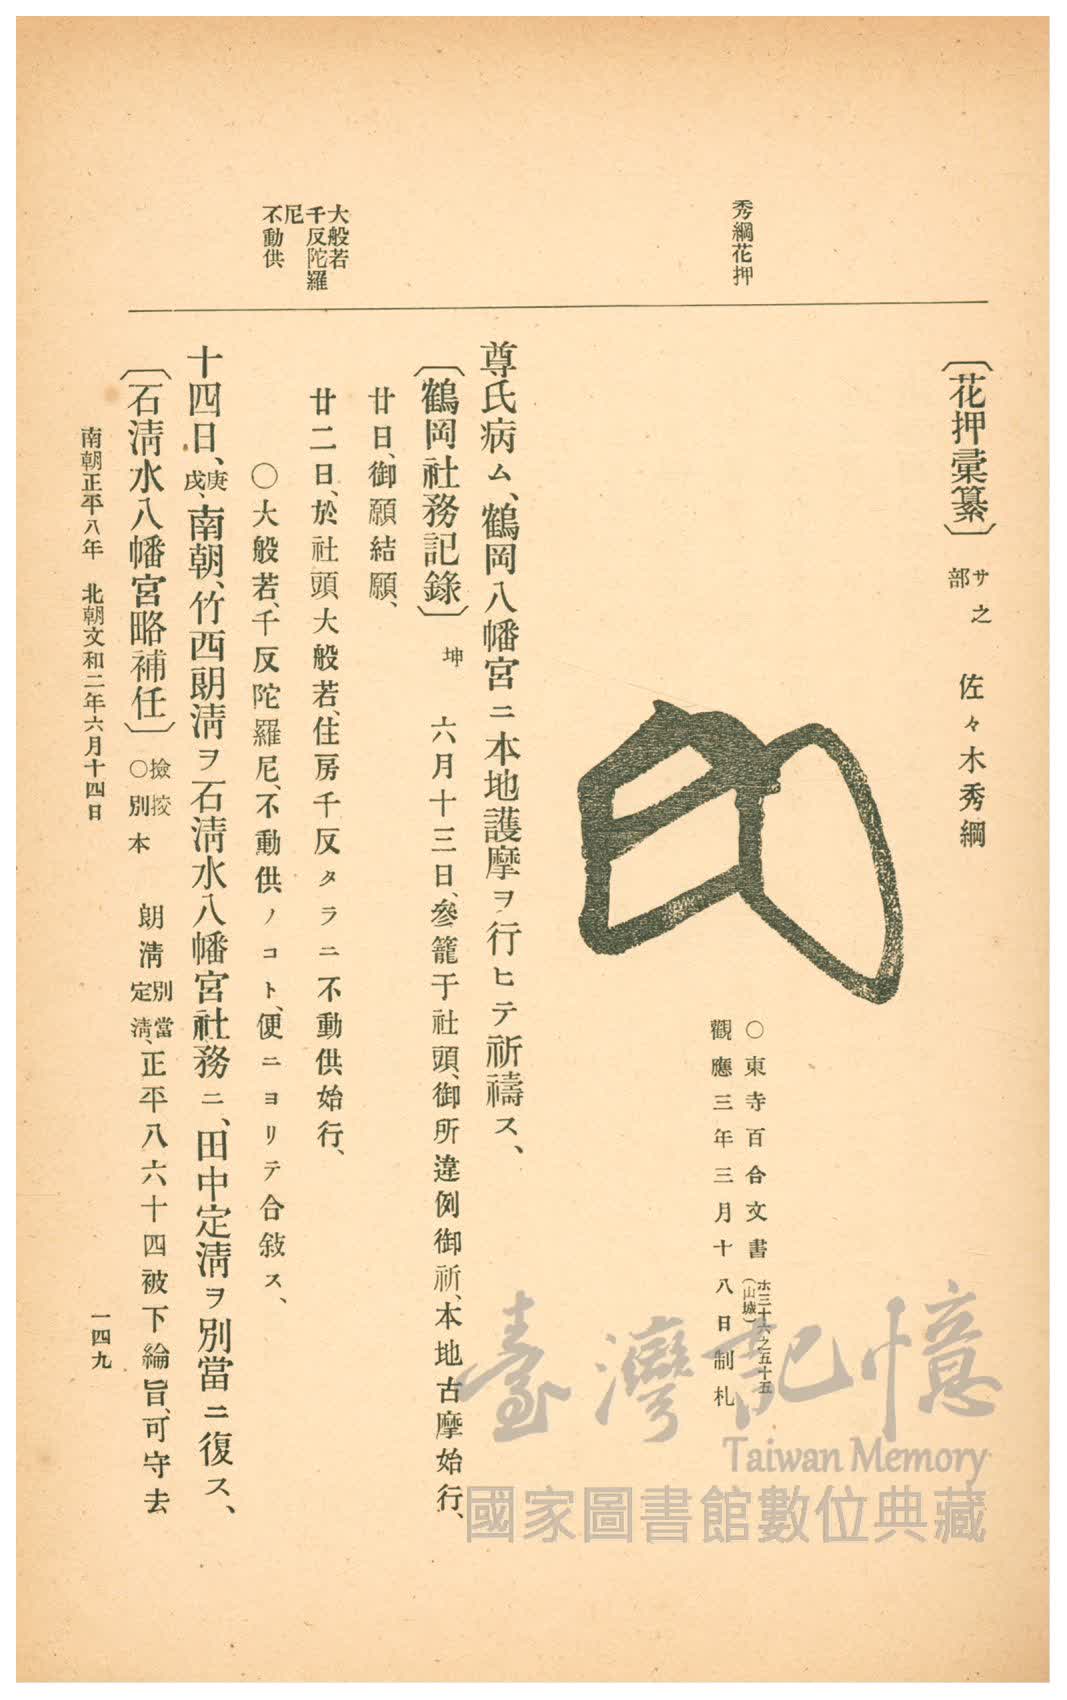 秀綱花押
大般若
千反陀羅
尼
不動供
〔花押彙纂〕 サ之部 佐々木秀綱
〇東寺百合文書 ホ三十六之五十五(山城)
觀應三年三月十八日制札
尊氏病ム、鶴岡八幡宮ニ本地護摩ヲ行ヒテ祈禱ス、
〔鶴岡社務記錄〕 坤 六月十三日、參籠于社頭、御所違例御祈、本地古摩始行、
廿日、御願結願、
廿二日、於社頭大般若、住房千反タラニ不動供始行、
〇大般若、千反陀羅尼、不動供ノコト、便ニヨリテ合敍ス、
十四日、庚戌、南朝、竹西朗淸ヲ石淸水八幡宮社務ニ、田中定淸ヲ別當ニ復ス、
〔石淸水八幡宮略補任〕 〇撿挍別本 朗淸 別當定淸、正平八六十四被下綸旨、可守去
南朝正平八年 北朝文和二年六月十四日
一四九
臺灣記憶
Taiwan Memory
國家圖書館數位典藏